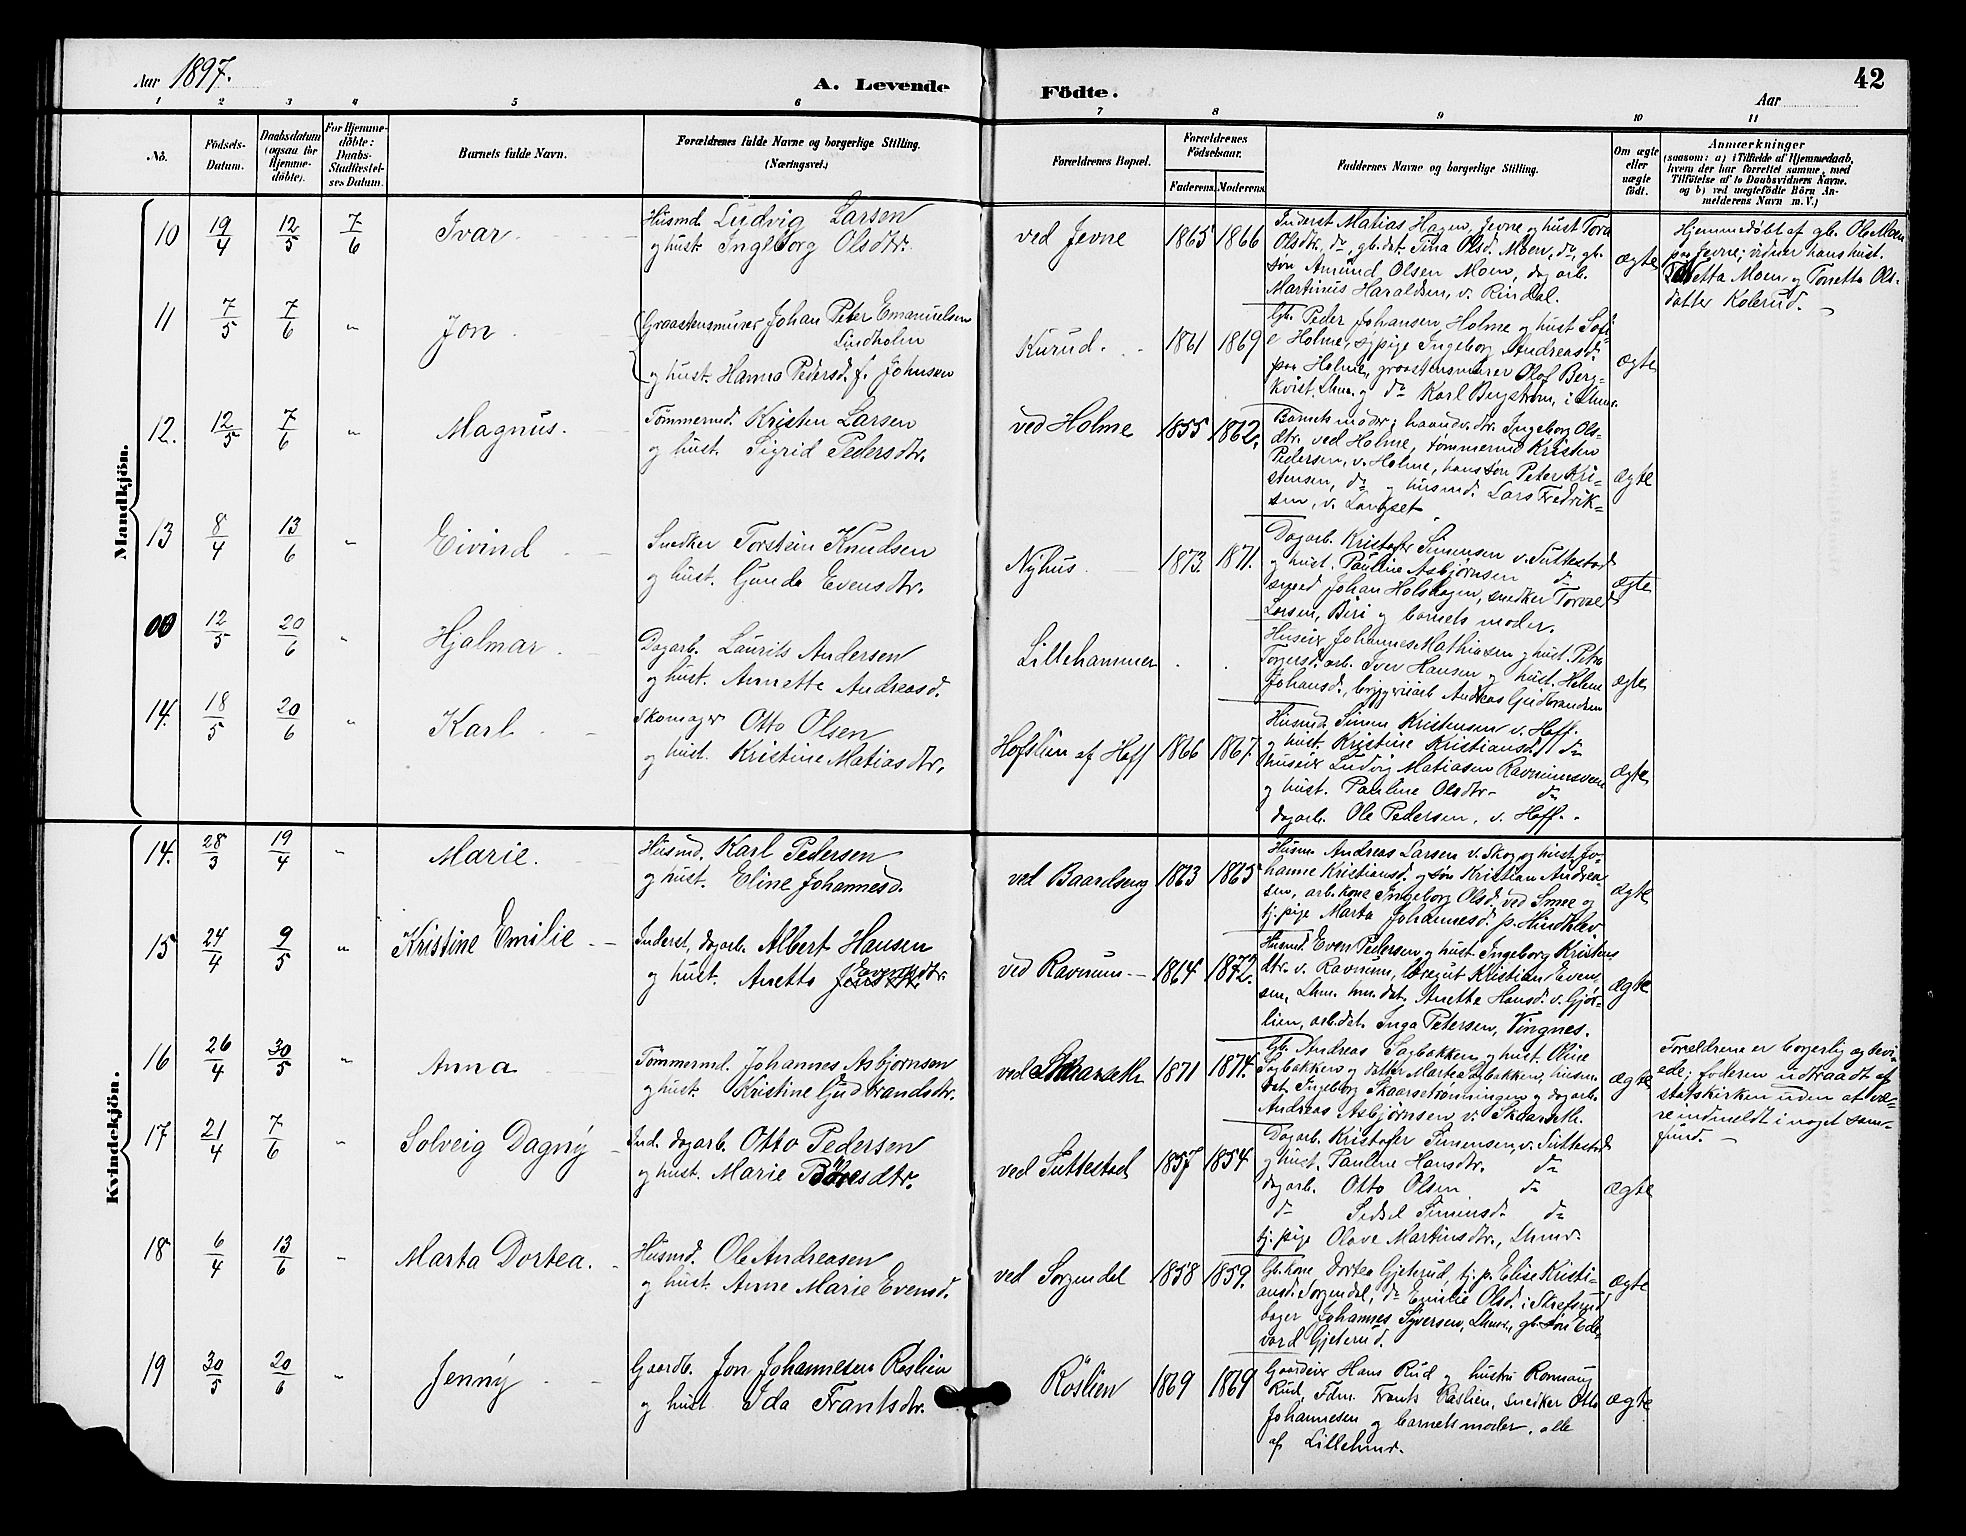 Aar 1897.
A. Levende Födte.
Aar
42
1 2 3 4 5 6 7 8 9 10 11
No.
Födsels-Datum.
Daabsdatum (ogsaa för Hjemmedöbte).
For Hjemmedöbte: Daabs-Stadfestelses Datum.
Barnets fulde Navn.
Forældrenes fulde Navne og borgerlige Stilling. (Næringsvei.)
Forældrenes Bopæl.
Forældrenes Födselsaar.
Faderens. Moderens.
Faddernes Navne og borgerlige Stilling.
Om ægte eller uægte födt.
Anmærkninger
(saasom: a) i Tilfælde af Hjemmedaab, hvem der har forrettet samme, med Tilföielse af to Daabsvidners Navne. og b) ved uægtefödte Börn Anmelderens Navn m. V.)
Mandkjön.
10 19/4 12/5 7/6 Ivar
Husmd. Ludvig Larsen
og hust. Ingeborg Olsdtr.
ved Jevne 1865 1866
Inderst Matias Hagen, Jevne og hust Tora
Olsdtr. do, gb.dat. Tina Olsd. Moen, do, gb.
søn Amund Olsen Moen, dagarb.
Martinus Haraldsen, v. Rindal.
ægte
Hjemmedöbt af gb. Ole Moen
paa Jevne; vidner hans hust.
Moen og Tonetta Ols-
datter Kolerud.
11 7/5 7/6 " Jon
Graastensmurer Johan Peter Emanuelsen
Lindholm
og hust. Hanna Pedersd. f. Johnsen
Kurud. 1861 1869
Gb. Peder Johansen Holme og hust Sofi-
e Holme, sypige Ingeborg Andreasd.
paa Holme, graastensmurer Olof Berg-
kvist, Lhmr. og do Karl Bergstrøm, i Lhmr.
ægte
12. 12/5 7/6 " Magnus.
Tømmermd. Kristen Larsen
og hust. Sigrid Pedersdtr.
ved Holme 1855 1862.
Barnets moder, haandv.dtr. Ingeborg Ols-
dtr. ved Holme, tømmermd Kristen
Pedersen, v. Holme, hans søn Peter Kri-
stensen, do og husmd. Lars Fredrik-
sen, v. Langset
ægte
13 8/4 13/6 " Eivind
Snedker Torstein Knudsen
og hust. Gunda Evensdtr.
Nyhus 1873. 1871.
Dagarb. Kristofer Simensen v. Suttestad
og hust. Pauline Asbjørnsen do
smed Johan Holshagen, snedker Torvald
Larsen, Biri og barnets moder.
ægte
00 12/5 20/6 " Hjalmar
Dagarb. Laurits Andersen
og hust. Annette Andreasd.
Lillehammer . .
Huseier Johannes Mathiasen og hust. Petra
Torgersd. arb. Iver Hansen og hust. Helene
Johansd., bryggeriarb Andreas Gudbrandsen
ægte
14. 18/5 20/6 " Karl
Skomager Otto Olsen
og hust. Kristine Matiasdtr.
Hofslien af Hoff 1866 1867.
Husmd. Simen Kristensen v. Hoff.
og hust. Kristine Kristiansd. do
huseier Ludvig Matiasen Ravnumsveen
og hust. Pauline Olsdtr. do
dagarb. Ole Pedersen, v. Hoff.
ægte
Kvindekjön.
14. 28/3 19/4 " Marie.
Husmd. Karl Pedersen
og hust. Eline Johannesd.
ved Baardseng 1863 1865
Husm. Andreas Larsen v. Skog og hust. Jo-
hanne Kristiansd. og søn Kristian Andrea-
sen, arb.kone Ingeborg Olsd. ved Smee og
tj. pige Marta Johannesd. p. Hindklev.
ægte
15 24/4 9/5 " Kristine Emilie
Inderst, dagarb. Albert Hansen
og hust. Anette Evensdtr.
ved Ravnum 1864 1872.
Husmd. Even Pedersen og hust Ingeborg Kristens
dtr. v. Ravnum, Kristian Even
sen, Lhm. hm.dat. Anette Hansd. v. Gjør-
lien, arb.dat. Inga Petersen, Vingnes.
ægte
16 26/4 30/5 " Anna
Tømmermd. Johannes Asbjørnsen
og hust. Kristine Gudbrandsdtr.
ved Skaarseth 1871 1874.
Gb. Andreas Sagbakken og hust. Oline
Sagbakken og datter Martea Sagbakken, husm.
dat. Ingeborg Skaarsetrønningen og dagarb.
Andreas Asbjørnsen v. Skaarseth.
ægte
Forældrene er borgerlig ægtevi-
ede; faderen udtraadt af
statskirken uden at væ-
re indmeldt i noget sam-
fund.
17 21/4 7/6 " Solveig Dagny
Ind. dagarb. Otto Pedersen
og hust. Marie Böresdtr.
ved Suttestad 1857 1854
Dagarb. Kristofer Simensen, v. Suttestad
og hust. Pauline Hansdtr. do
dagarb. Otto Olsen do
do Sidsel Simensd. do
tj. pige Olave Martinsdtr., Lhmr.
ægte
18 6/4 13/6 " Marta Dortea.
Husmd. Ole Andreasen
og hust. Anne Marie Evensd.
ved Sorgendal 1858 1859.
Gb.kone Dortea Gjeterud, tj. p. Elise Kristi-
ansd. Sorgendal, do Emilie Olsd. i Skrefsrud
bager Johannes Syversen, Lhmr., gb. søn Ed-
vard Gjeterud.
ægte
19 30/5 20/6 " Jenny
Gaardb. Jon Johannesen Røslien
og hust Ida Frantsdtr.
Røslien 1869 1869
Gaardeier Hans Rud og hustru Romaug
Rud, Fdm. Frants Røslien, snedker Otto
Johannesen og barnets moder, alle
af Lillehmr.
ægte